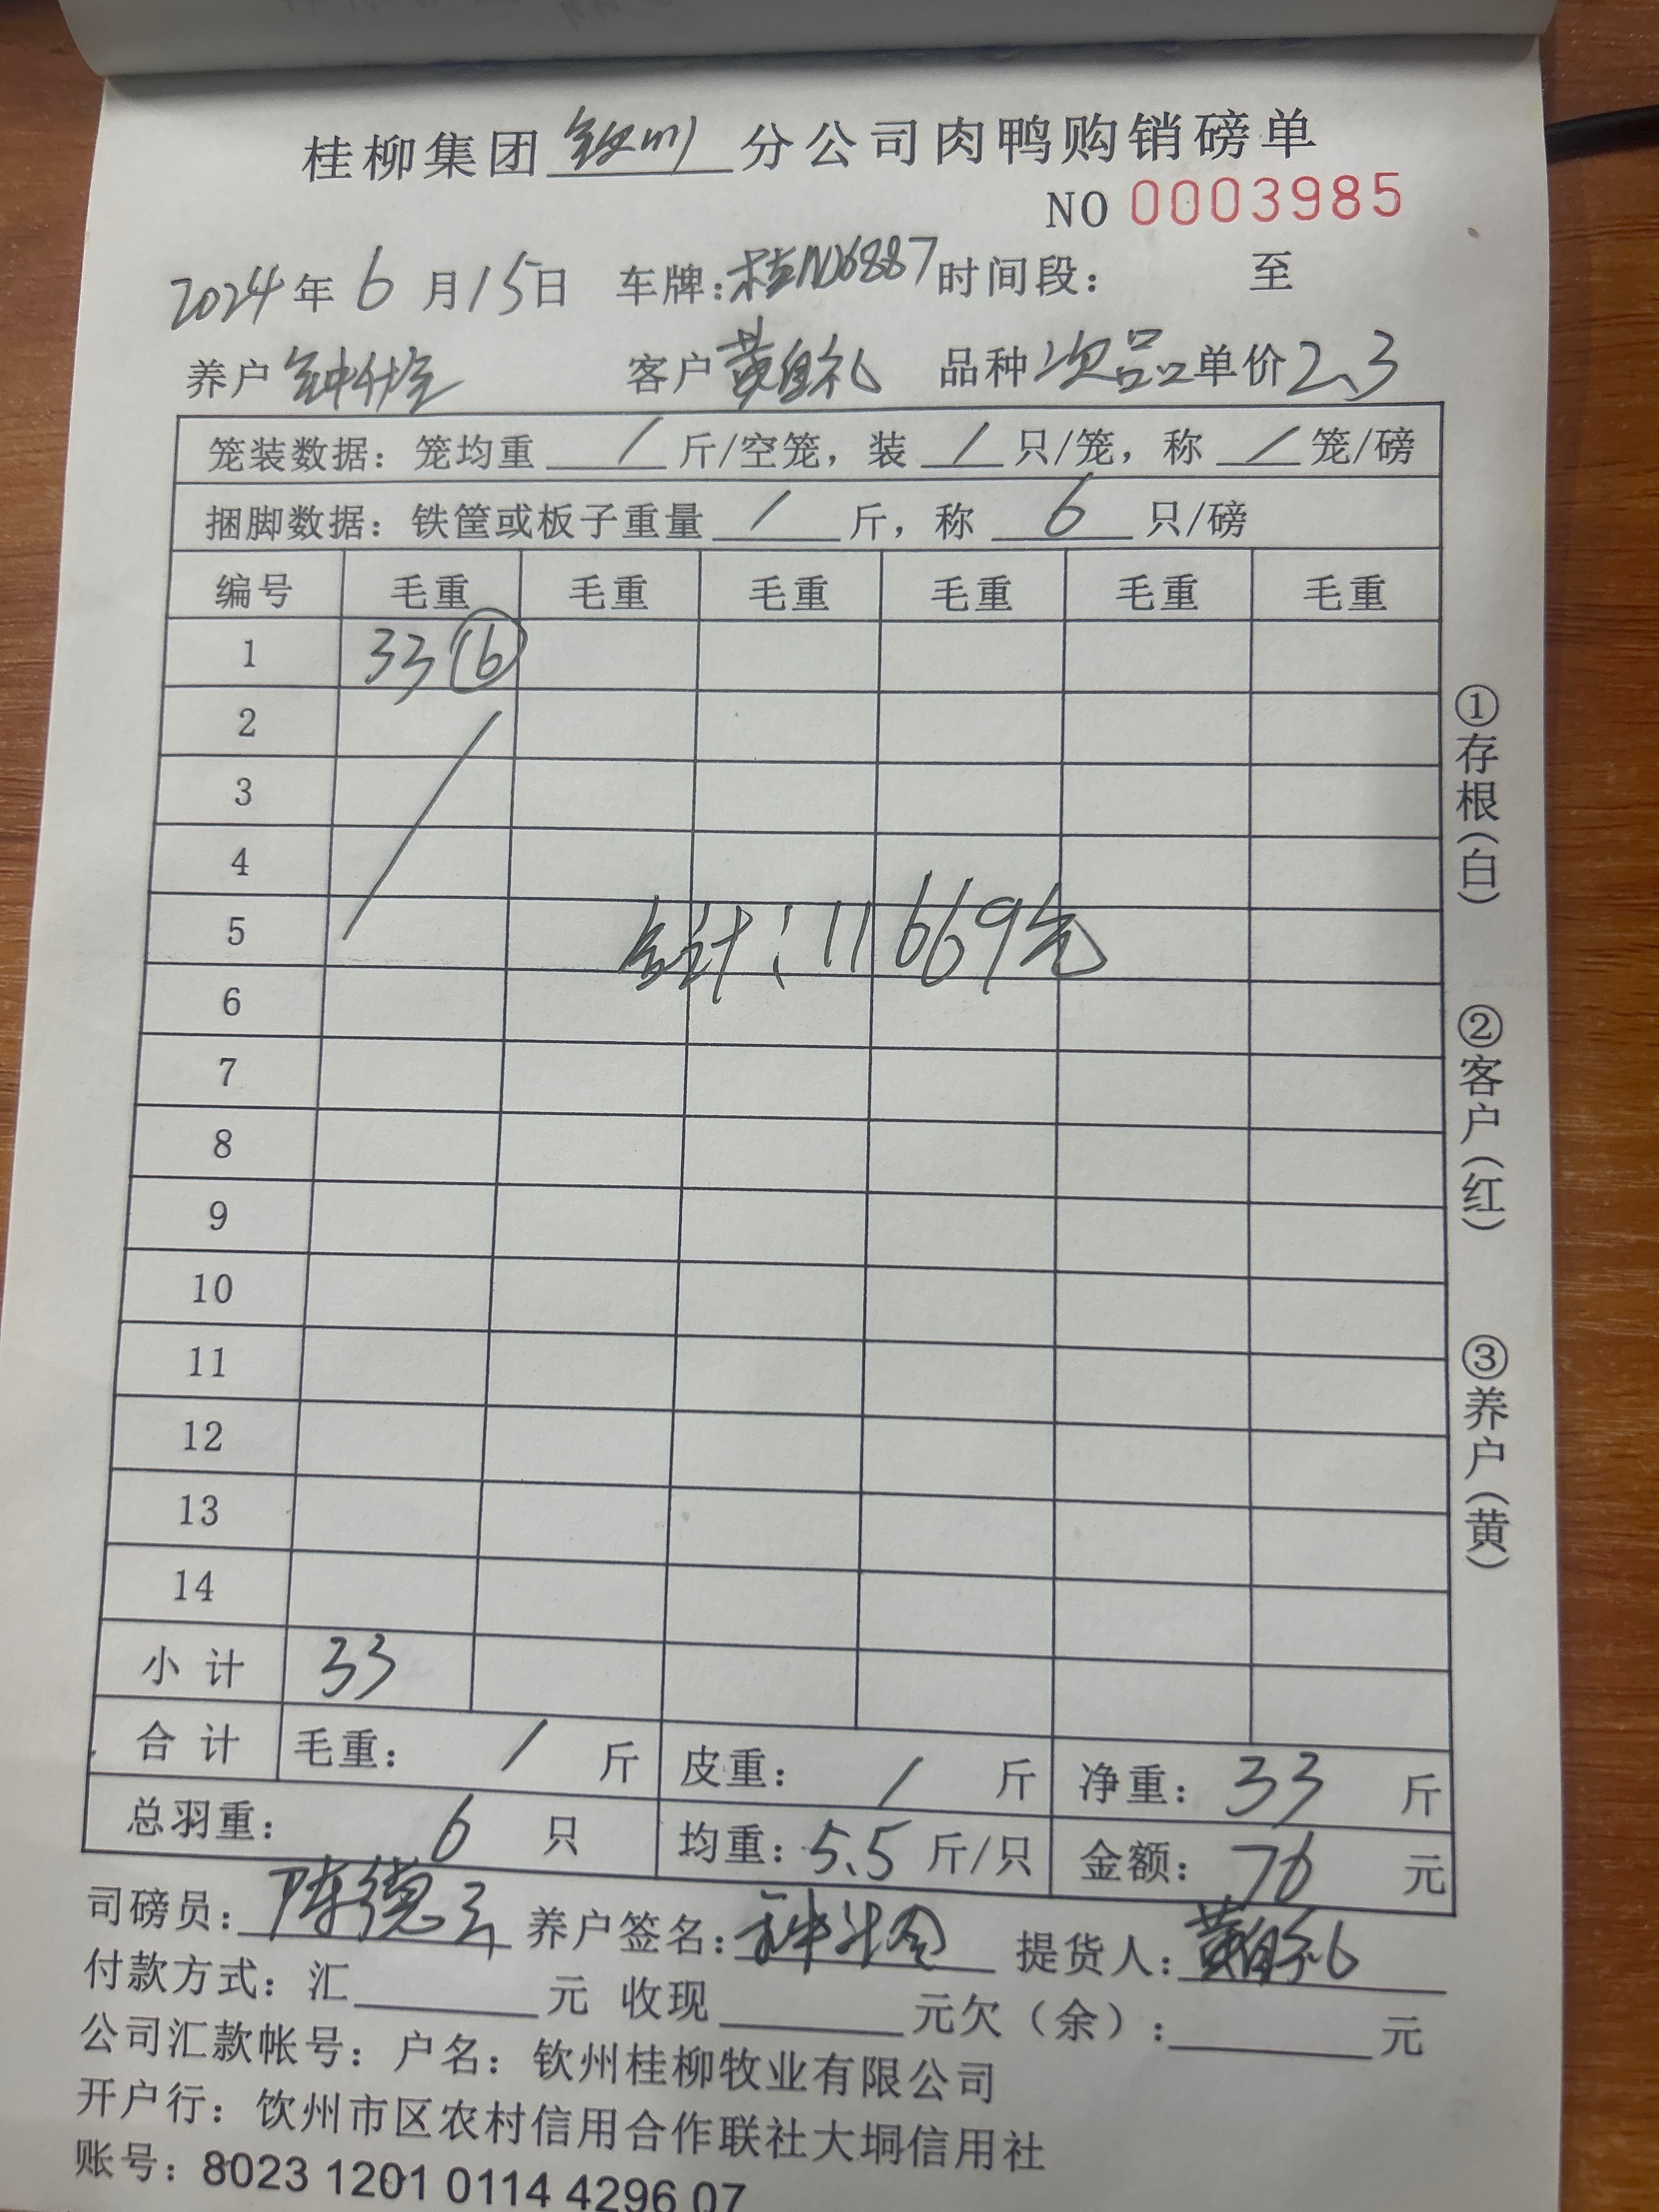 桂柳集团 钦州 分公司肉鸭购销磅单
NO 0003985
2024年6月15日 车牌:桂N06887 时间段： 至
养户 钟 客户 黄自礼 品种 次品 单价 2、3
笼装数据：笼均重 / 斤/空笼，装 / 只/笼，称 / 笼/磅
捆脚数据：铁筐或板子重量 / 斤，称 6 只/磅
编号 毛重 毛重 毛重 毛重 毛重 毛重
1 33 ⑥
2
3
4
5
合计：11669元
6
7
8
9
10
11
12
13
14
小计 33
合计 毛重： / 斤 皮重： / 斤 净重：33 斤
总羽重： 6 只 均重：5.5 斤/只 金额：76 元
司磅员：陈德 养户签名： 提货人：黄自礼
付款方式：汇 元 收现 元欠（余）： 元
公司汇款帐号：户名：钦州桂柳牧业有限公司
开户行：钦州市区农村信用合作联社大垌信用社
账号：8023 1201 0114 4296 07
①存根（白）
②客户（红）
③养户（黄）